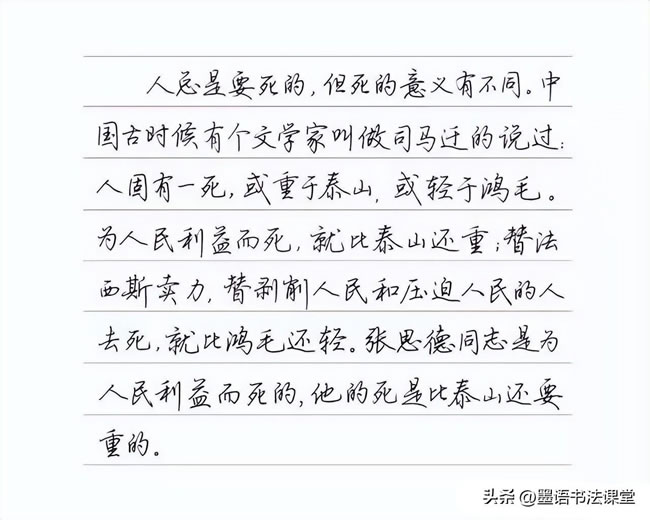 人总是要死的，但死的意义有不同。中
国古时候有个文学家叫做司马迁的说过：
人固有一死，或重于泰山，或轻于鸿毛。
为人民利益而死，就比泰山还重；替法
西斯卖力，替剥削人民和压迫人民的人
去死，就比鸿毛还轻。张思德同志是为
人民利益而死的，他的死是比泰山还要
重的。
头条 @墨语书法课堂